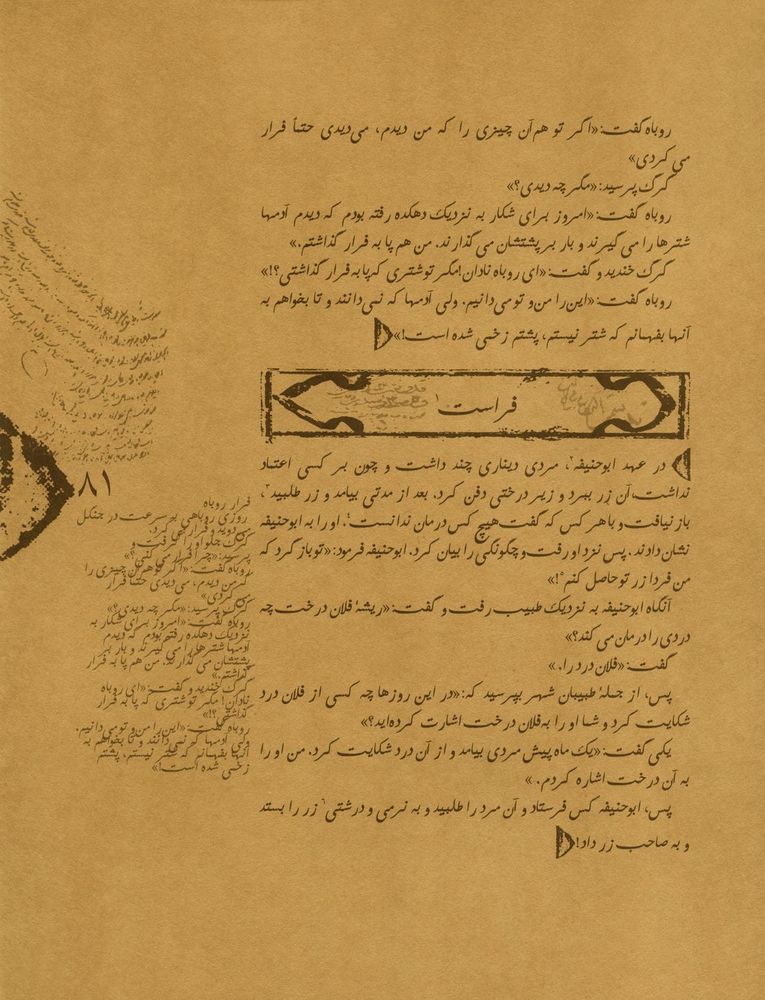 روباه گفت: «اگر تو هم‌آن چیزی را که من دیدم، می‌دیدی حتماً فرار
می‌کردی»
گرگ پرسید: «مگر چه دیدی؟»
روباه گفت: «امروز برای شکار به نزدیک دهکده رفته بودم که دیدم آدمها
شترها را می‌گیرند و بار بر پشتشان می‌گذارند. من هم پا به فرار گذاشتم.»
گرگ خندید و گفت: «ای روباه نادان! مگر تو شتری که پا به فرار گذاشتی؟!»
روباه گفت: «این را من و تو می‌دانیم. ولی آدمها که نمی‌دانند و تا بخواهم به
آنها بفهمانم که شتر نیستم، پشتم زخمی شده است!»
فراست۱
در عهد ابوحنیفه۲، مردی دیناری چند داشت و چون بر کسی اعتماد
نداشت، آن زر ببرد و زیر درختی دفن کرد. بعد از مدتی بیامد و زر طلبید۳،
باز نیافت و با هر کس که گفت هیچ کس درمان ندانست۴. او را به ابوحنیفه
نشان دادند. پس نزد او رفت و چگونگی را بیان کرد. ابوحنیفه فرمود: «تو باز گرد که
من فردا زر تو حاصل کنم۵!»
آنگاه ابوحنیفه به نزدیک طبیب رفت و گفت: «ریشهٔ فلان درخت چه
دردی را درمان می‌کند؟»
گفت: «فلان درد را.»
پس، از جملهٔ طبیبان شهر بپرسید که: «در این روزها چه کسی از فلان درد
شکایت کرد و شما او را به فلان درخت اشارت کرده‌اید؟»
یکی گفت: «یک ماه پیش مردی بیامد و از آن درد شکایت کرد. من او را
به آن درخت اشاره کردم.»
پس، ابوحنیفه کس فرستاد و آن مرد را طلبید و به نرمی و درشتی۶ زر را بستد
و به صاحب زر داد!
۸۱
فرار روباه
روزی روباهی به سرعت در جنگل
می‌دوید و فرار می‌کرد.
گرگ جلو او را گرفت و
پرسید: «چرا فرار می‌کنی؟»
روباه گفت: «اگر تو هم‌آن چیزی را
که من دیدم، می‌دیدی حتماً فرار
می‌کردی»
گرگ پرسید: «مگر چه دیدی؟»
روباه گفت: «امروز برای شکار به
نزدیک دهکده رفته بودم که دیدم
آدمها شترها را می‌گیرند و بار بر
پشتشان می‌گذارند. من هم پا به فرار
گذاشتم.»
گرگ خندید و گفت: «ای روباه
نادان! مگر تو شتری که پا به فرار
گذاشتی؟!»
روباه گفت: «این را من و تو می‌دانیم.
ولی آدمها که نمی‌دانند و تا بخواهم به
آنها بفهمانم که شتر نیستم، پشتم
زخمی شده است!»